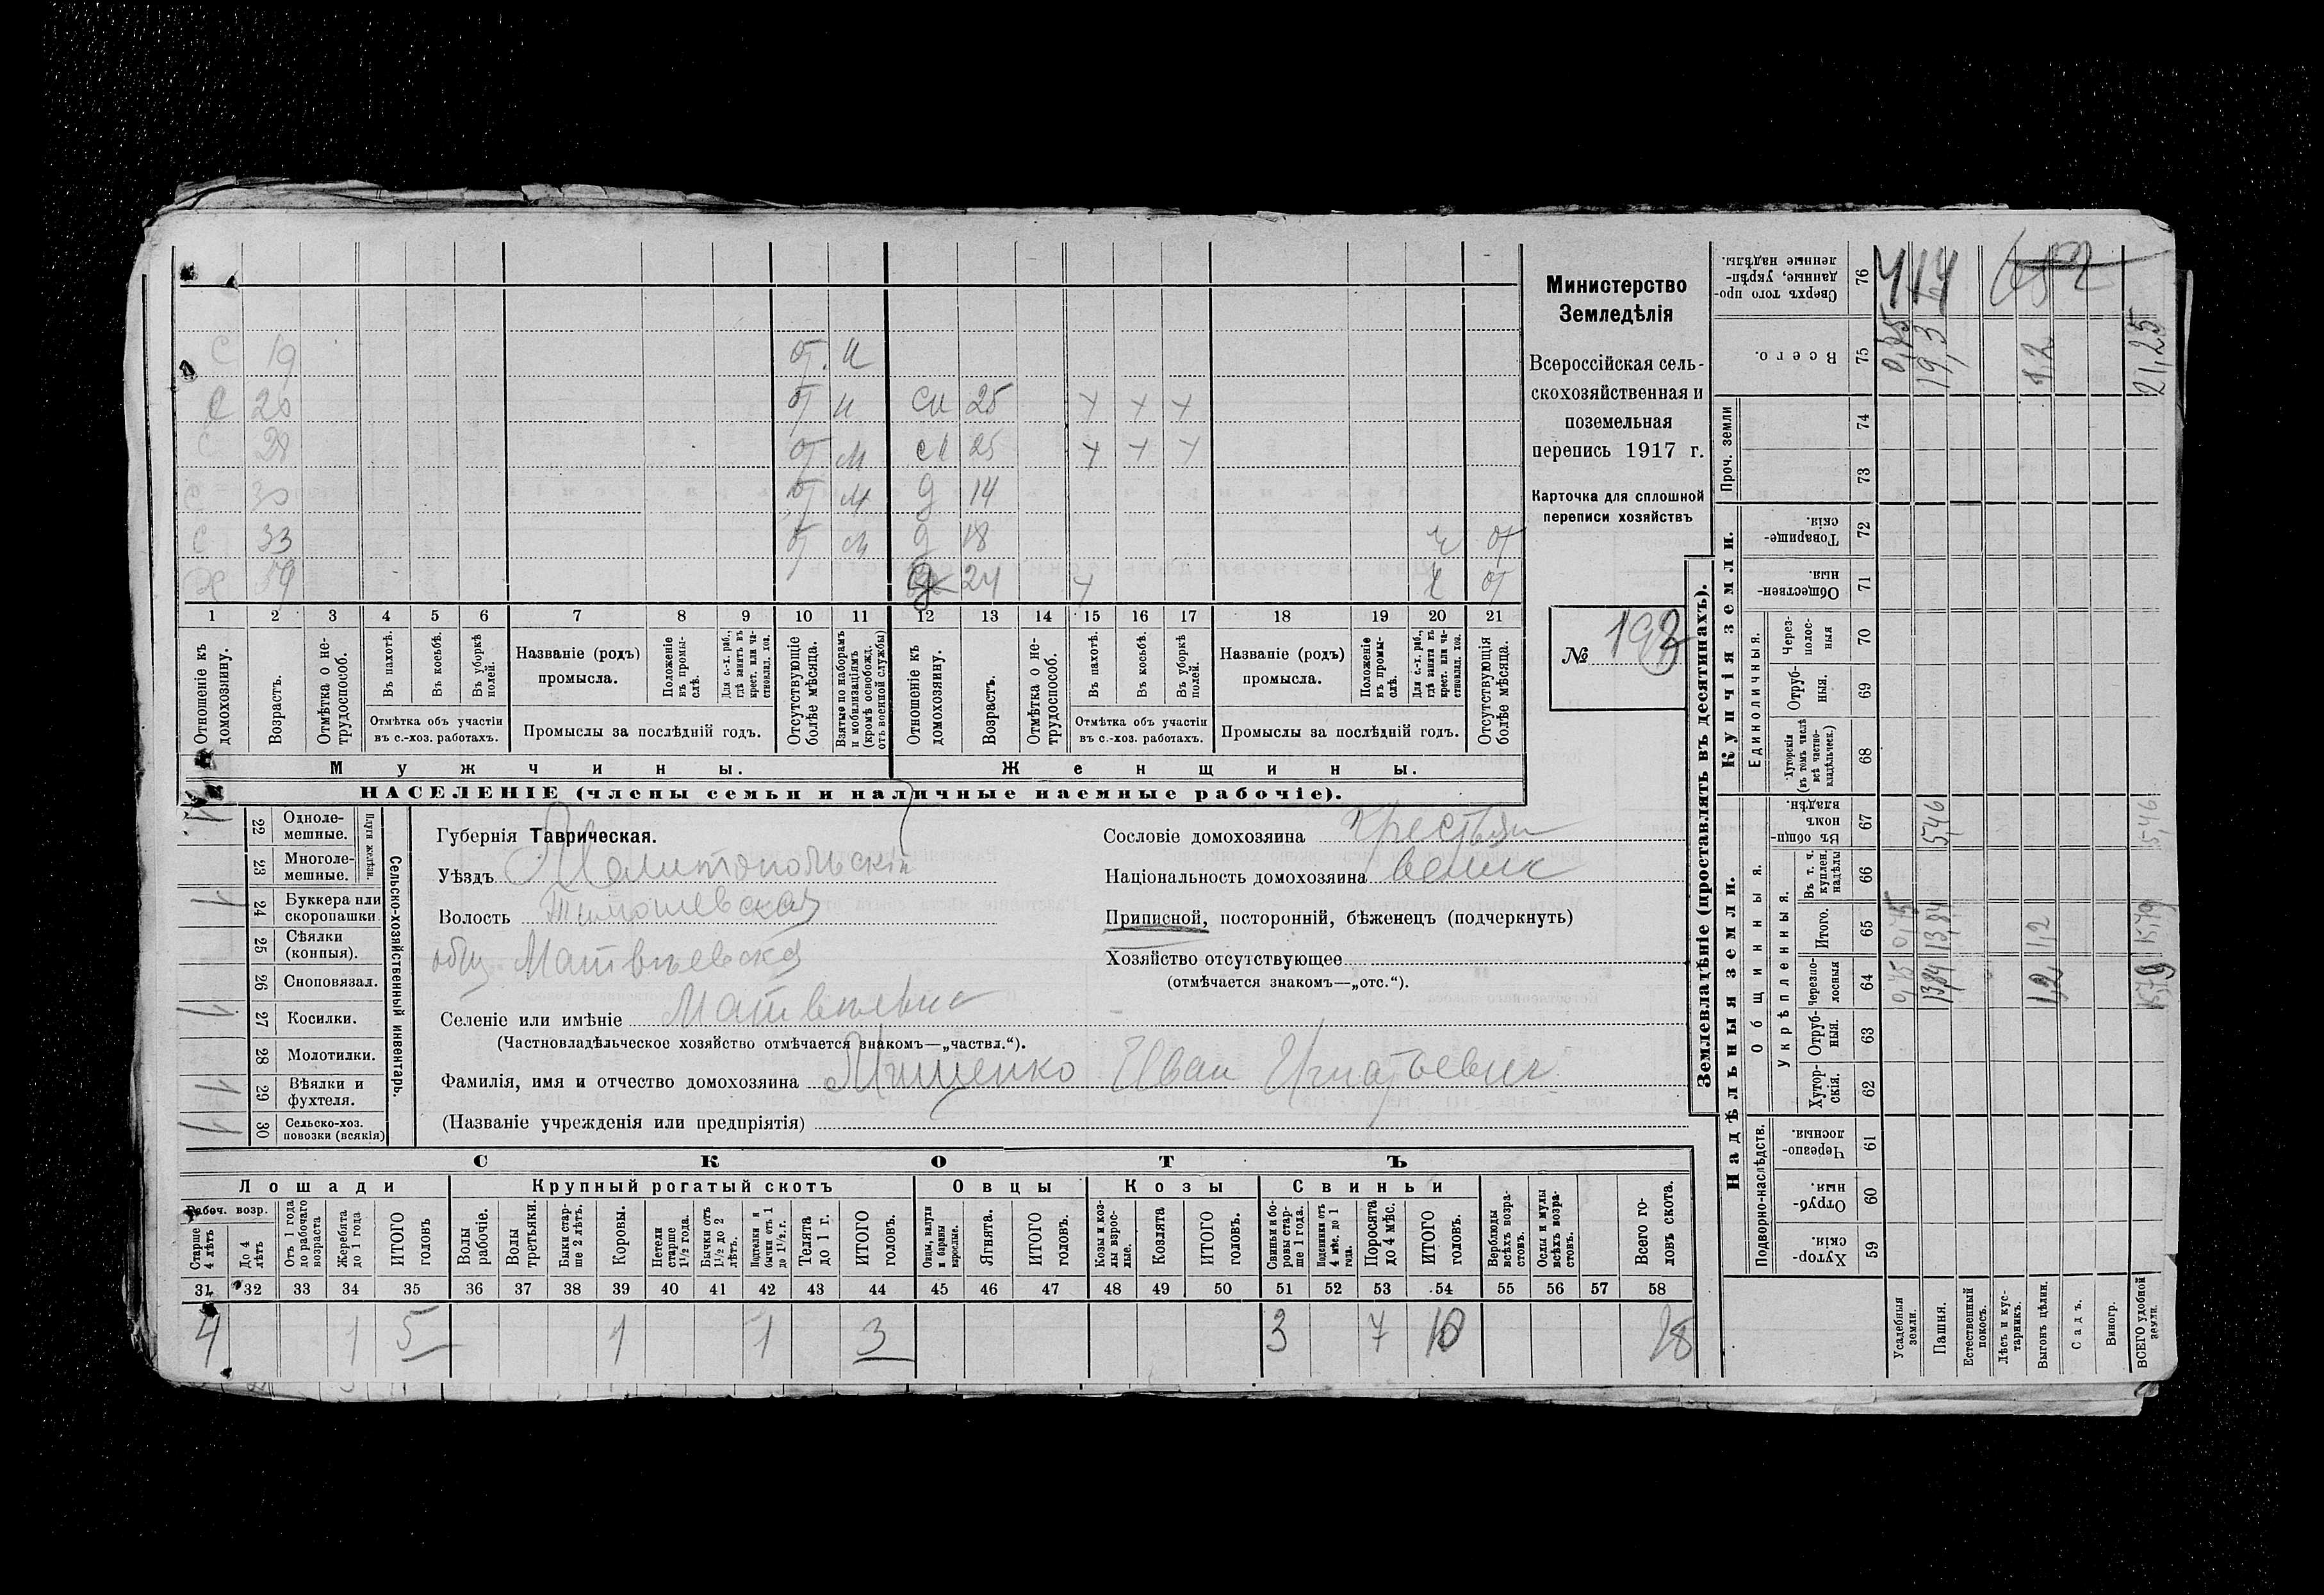 С 19 от. м
С 20 от м сн 25 + + +
С 28 от м сн 25 + + +
С 30 от м д 14
С 33 от м д 18 ч от
Х 59 д 24 + ч от
1 2 3 4 5 6 7 8 9 10 11 12 13 14 15 16 17 18 19 20 21
Отношеніе къ домохозяину.
Возрастъ.
Отмѣтка о нетрудоспособ.
Въ пахотѣ.
Въ косьбѣ.
Въ уборкѣ полей.
Отмѣтка объ участіи въ с.-хоз. работахъ.
Названіе (родъ) промысла.
Положеніе въ промыслѣ.
Для с.-х. раб., гдѣ занятъ въ крест. или частновлад. хоз.
Промыслы за послѣдній годъ.
Отсутствующіе болѣе мѣсяца.
Взятые по наборамъ и мобилизаціямъ (кромѣ освобожд. отъ военной службы)
Отношеніе къ домохозяину.
Возрастъ.
Отмѣтка о нетрудоспособ.
Въ пахотѣ.
Въ косьбѣ.
Въ уборкѣ полей.
Отмѣтка объ участіи въ с.-хоз. работахъ.
Названіе (родъ) промысла.
Положеніе въ промыслѣ.
Для с.-х. раб., гдѣ занята въ крест. или частновлад. хоз.
Промыслы за послѣдній годъ.
Отсутствующія болѣе мѣсяца.
Мужчины. Женщины.
НАСЕЛЕНІЕ (члены семьи и наличные наемные рабочіе).
Министерство
Земледѣлія
Всероссійская сель-
скохозяйственная и
поземельная
перепись 1917 г.
Карточка для сплошной
переписи хозяйствъ
№ 193
Сельско-хозяйственный инвентарь.
Плуги желѣзн.
22 Одноле-
мешные.
23 Многоле-
мешные.
24 Буккера или
скоропашки 1
25 Сѣялки
(конныя).
26 Сноповязал.
27 Косилки. 1
28 Молотилки.
29 Вѣялки и
фухтеля. 1
30 Сельско-хоз.
повозки (всякія)
Губернія Таврическая.
Уѣздъ Мелитопольскій
Волость Тимошевская
общ Матвѣевская
Селеніе или имѣніе Матвѣевка
(Частновладѣльческое хозяйство отмѣчается знакомъ—„частвл.“).
Фамилія, имя и отчество домохозяина Мищенко Иван Игнатьевич
(Названіе учрежденія или предпріятія)
Сословіе домохозяина крестьян
Національность домохозяина велик
Приписной, посторонній, бѣженецъ (подчеркнуть)
Хозяйство отсутствующее
(отмѣчается знакомъ—„отс.“).
СКОТЪ
Лошади Крупный рогатый скотъ Овцы Козы Свиньи
Рабоч. возр.
Старше 4 лѣтъ
До 4 лѣтъ
Отъ 1 года до рабочаго возраста
Жеребята до 1 года
ИТОГО головъ
Волы рабочіе.
Волы третьяки.
Быки старше 2 лѣтъ.
Коровы.
Нетели старше 1½ года.
Бычки отъ 1½ до 2 лѣтъ.
Подтелки и бычки отъ 1 до 1½ г.
Телята до 1 г.
ИТОГО головъ.
Овцы, валухи и бараны взрослые.
Ягнята.
ИТОГО головъ.
Козы и козлы взрослые.
Козлята
ИТОГО головъ.
Свиньи и боровы старше 1 года.
Подсвинки отъ 4 мѣс. до 1 года.
Поросята до 4 мѣс.
ИТОГО головъ.
Верблюды всѣхъ возрастовъ.
Ослы и мулы всѣхъ возрастовъ.
Всего головъ скота.
31 32 33 34 35 36 37 38 39 40 41 42 43 44 45 46 47 48 49 50 51 52 53 54 55 56 57 58
4 1 5 1 1 3 3 7 10 18
Землевладѣніе (проставлять въ десятинахъ).
Купчія земли.
Надѣльныя земли.
Сверхъ того проданные, укрѣпленные надѣлы. 76
Всего. 75 0,75 19,3 1,2 21,25
Проч. земли 74 73
Товарищескія. 72
Общественныя. 71
Единоличныя.
Черезполосныя 70
Отрубныя. 69
Хуторскія (въ томъ числѣ всѣ частновладѣльческ.) 68
Общинныя.
Въ общинномъ владѣн. 67 5,46 5,46
Укрѣпленныя.
Въ т. ч. куплен. надѣлы 66
Итого. 65 0,75 13,84 1,2 15,79
Черезполосныя 64 0,75 13,84 1,2 15,79
Отрубныя. 63
Хуторскія. 62
Подворно-наслѣдств.
Черезполосныя. 61
Отрубныя. 60
Хуторскія. 59
Усадебныя земли.
Пашня.
Естественный покосъ.
Лѣсъ и кустарникъ.
Выгонъ цѣлин.
Садъ.
Виногр.
ВСЕГО удобной земли.